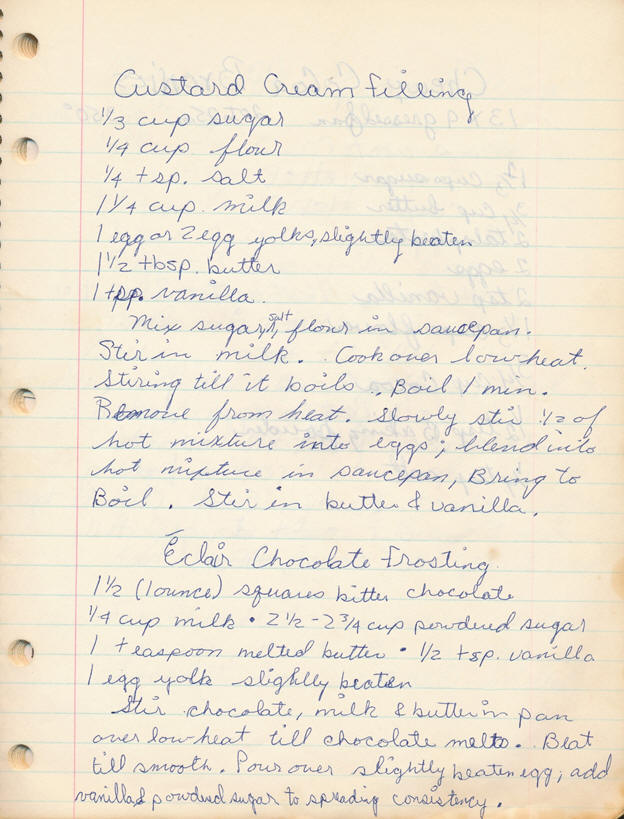 Custard Cream Filling
1/3 cup sugar
1/4 cup flour
1/4 tsp. salt
1 1/4 cup milk
1 egg or 2 egg yolks, slightly beaten
1 1/2 tbsp. butter
1 tsp. vanilla.
Mix sugar, salt, flour in saucepan.
Stir in milk. Cook over low heat.
Stiring till it boils. Boil 1 min.
Remove from heat. Slowly stir 1/2 of
hot mixture into eggs; blend into
hot mixture in saucepan, Bring to
Boil. Stir in butter & vanilla.
Éclair Chocolate Frosting
1 1/2 (1 ounce) squares bitter chocolate
1/4 cup milk • 2 1/2 - 2 3/4 cup powdered sugar
1 teaspoon melted butter • 1/2 tsp. vanilla
1 egg yolk slightly beaten
Stir chocolate, milk & butter in pan
over low heat till chocolate melts. Beat
till smooth. Pour over slightly beaten egg; add
vanilla & powdered sugar to spreading consistency.